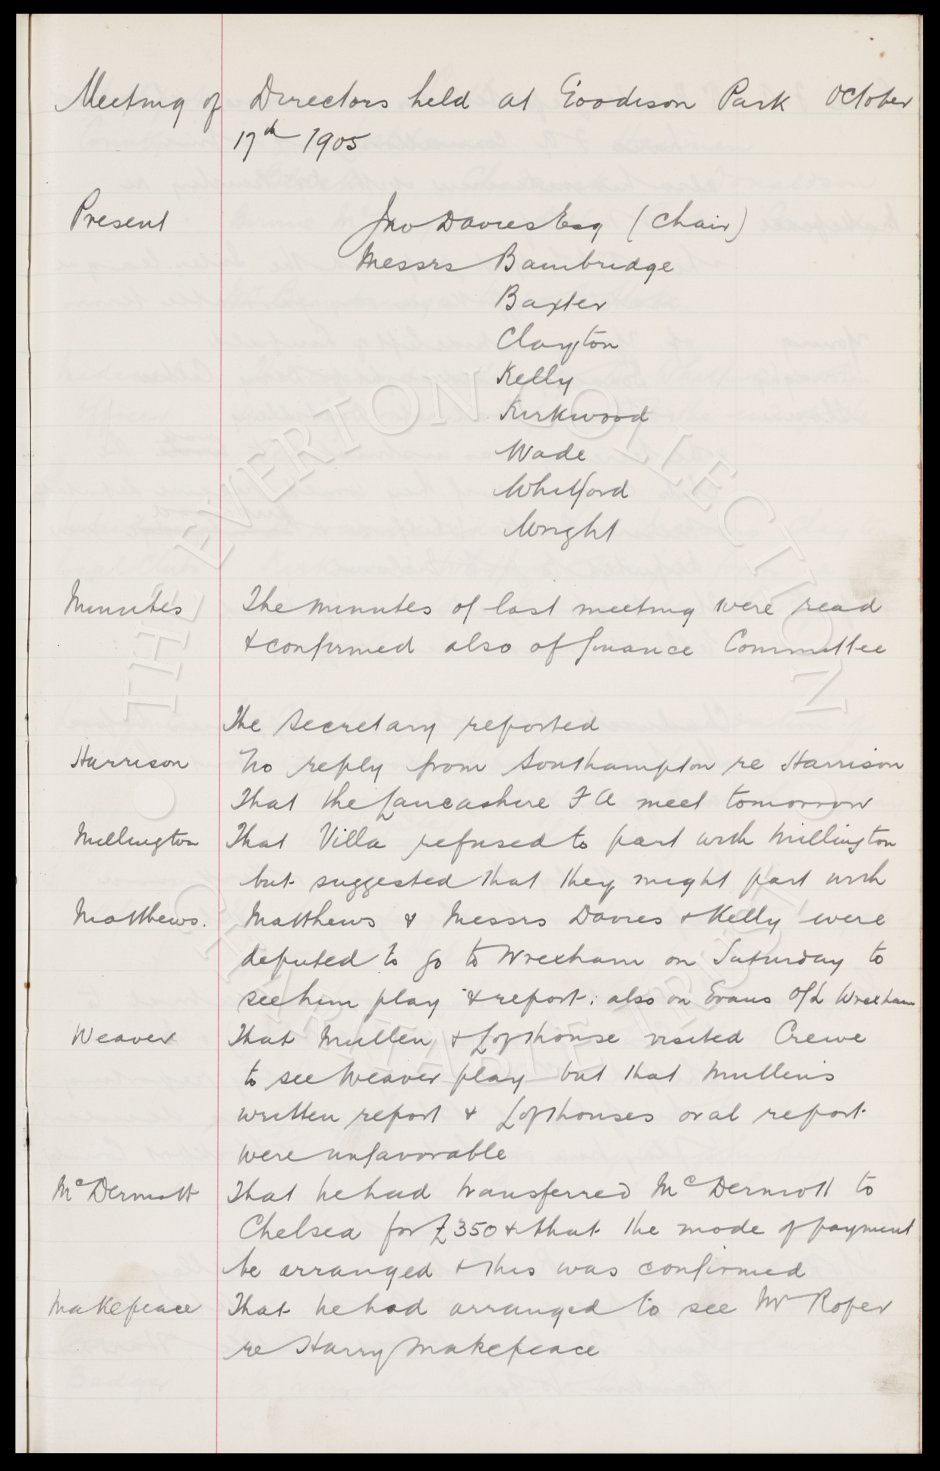 Meeting of Directors held at Goodison Park October
17th 1905
Present Jno Davies Esq (Chair)
Messrs Bainbridge
Baxter
Clayton
Kelly
Kirkwood
Wade
Whitford
Wright
Minutes The minutes of last meeting were read
& confirmed also of finance Committee
The Secretary reported
Harrison No reply from Southampton re Harrison
That the Lancashire F A meet tomorrow
Millington That Villa refused to part with Millington
but suggested that they might part with
Matthews. Matthews & Messrs Davies & Kelly were
deputed to go to Wrexham on Saturday to
see him play & report; also on Evans O/L Wrexham
Weaver That Mullen & Lofthouse visited Crewe
to see Weaver play but that Mullens
written report & Lofthouses oral report
were unfavorable
McDermott That he had transferred McDermott to
Chelsea for £350 & that the mode of payment
be arranged & this was confirmed
Makepeace That he had arranged to see Mr Roper
re Harry Makepeace
THE EVERTON COLLECTION
CHARITABLE TRUST